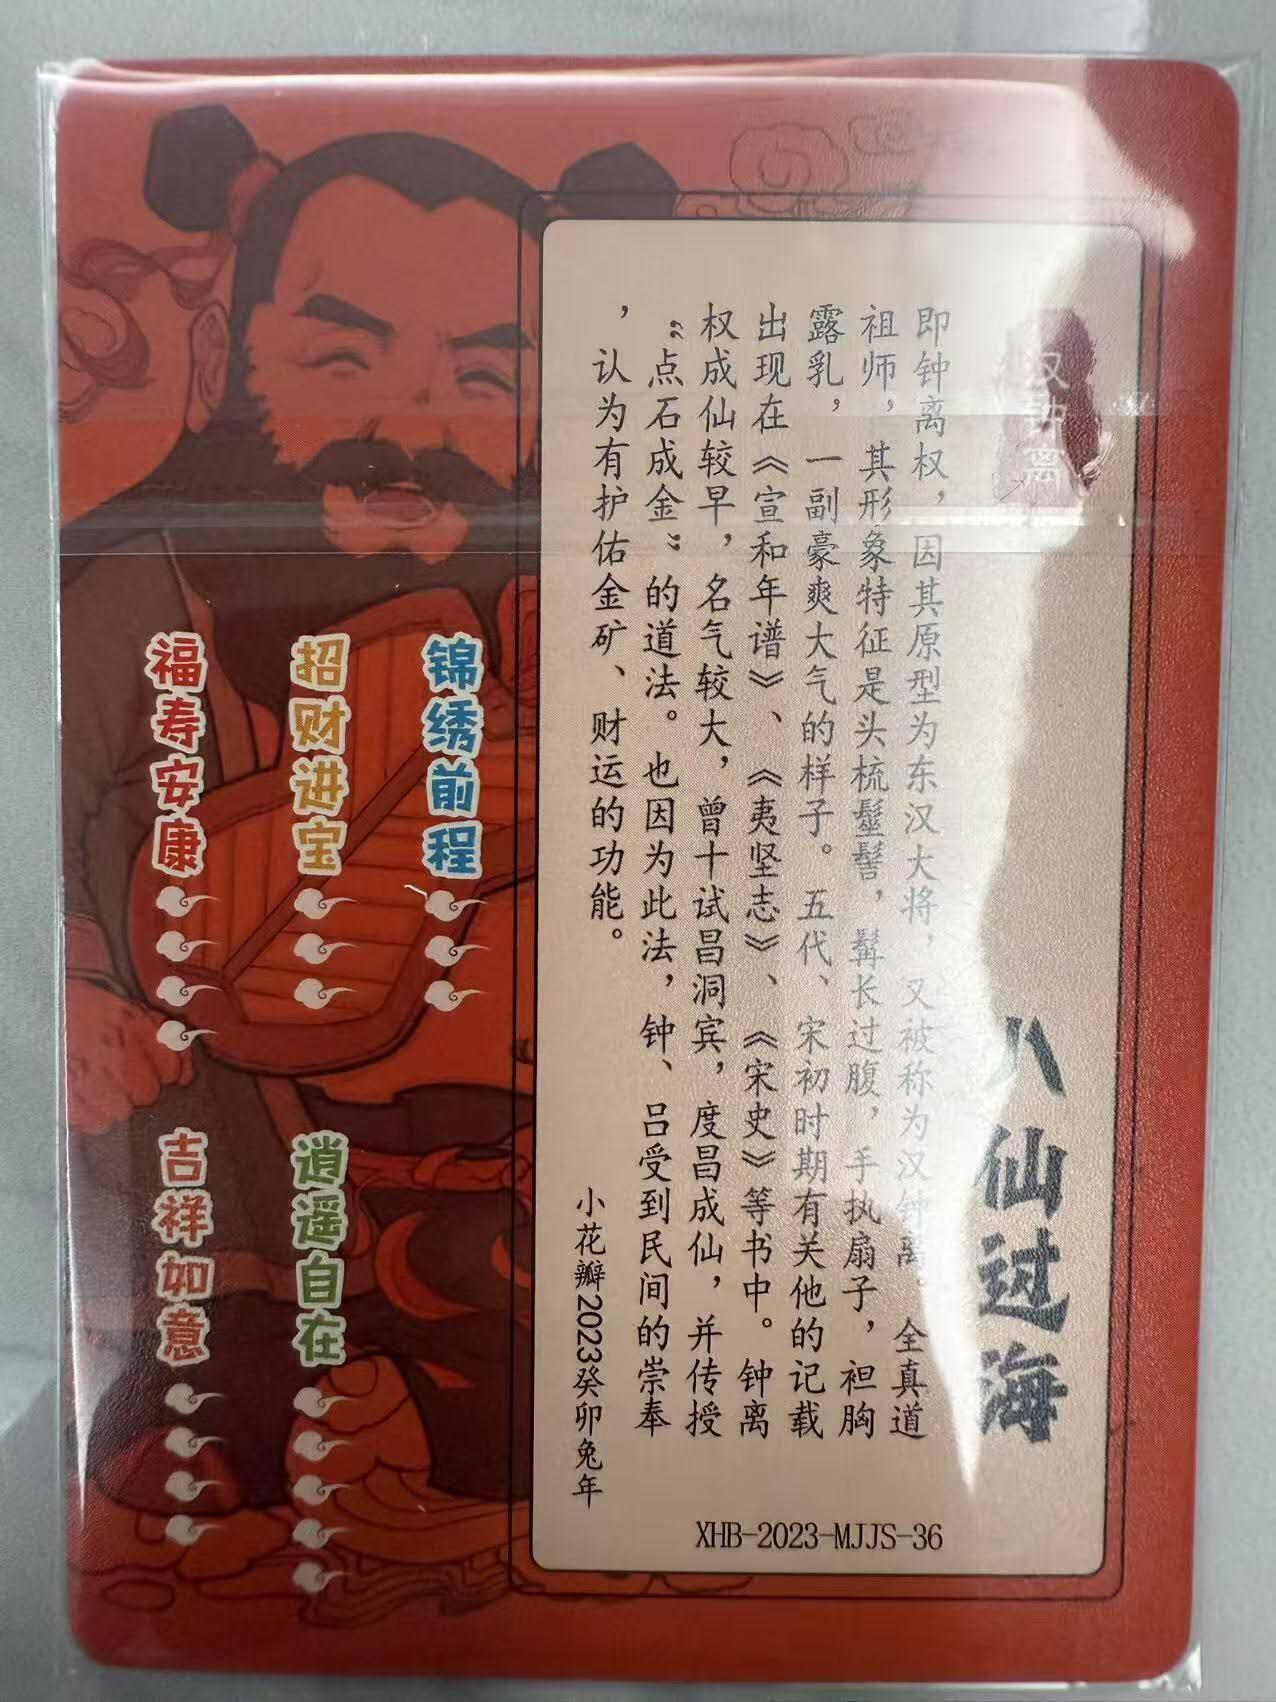 汉钟离
八仙过海
即钟离权，因其原型为东汉大将，又被称为汉钟离。全真道
祖师，其形象特征是头梳髽髻，髯长过腹，手执扇子，袒胸
露乳，一副豪爽大气的样子。五代、宋初时期有关他的记载
出现在《宣和年谱》、《夷坚志》、《宋史》等书中。钟离
权成仙较早，名气较大，曾十试吕洞宾，度吕成仙，并传授
“点石成金”的道法。也因为此法，钟、吕受到民间的崇奉
，认为有护佑金矿、财运的功能。
小花瓣2023癸卯兔年
XHB-2023-MJJS-36
锦绣前程
招财进宝
逍遥自在
福寿安康
吉祥如意